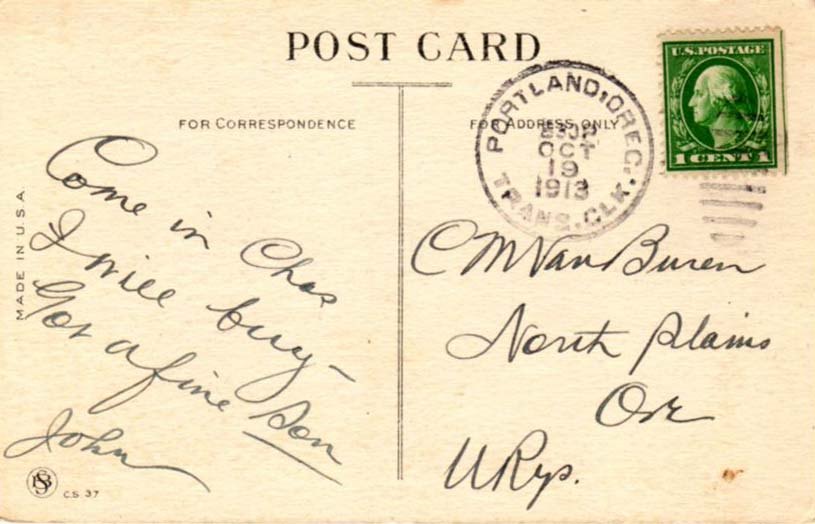 POST CARD
FOR CORRESPONDENCE
FOR ADDRESS ONLY
MADE IN U.S.A.
U.S. POSTAGE
1 CENT 1
PORTLAND, OREG.
OCT
19
1913
TRANS. CLK.
Come in Chas
I will buy—
Got a fine Son
John
C M Van Buren
North Plains
Ore
U Rys.
C.S. 37